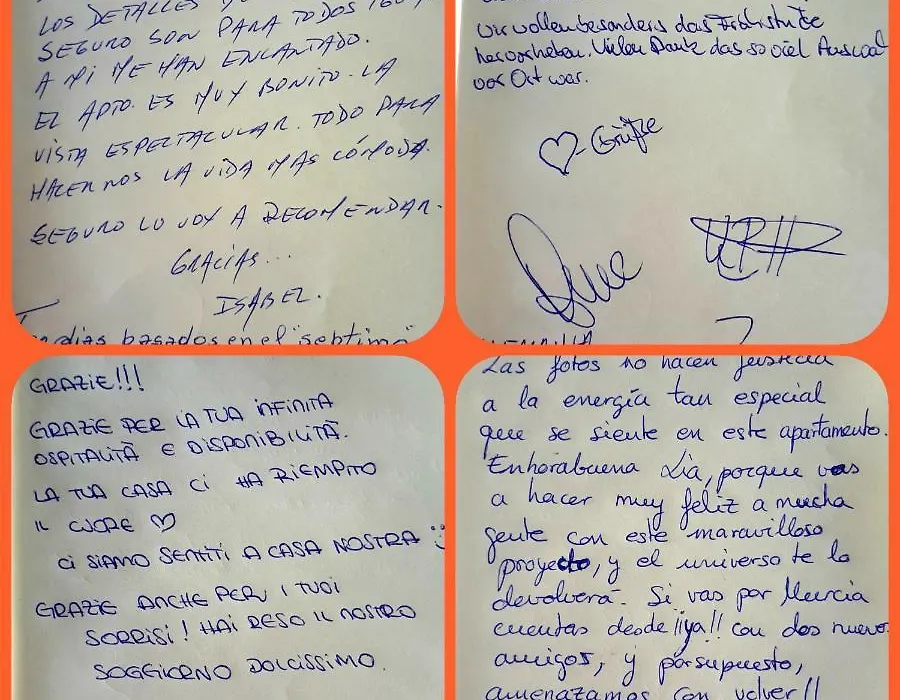 LOS DETALLES
SEGURO SON PARA TODOS
A MI ME HAN ENCANTADO.
EL APTO. ES MUY BONITO. LA
VISTA ESPECTACULAR. TODO PARA
HACERNOS LA VIDA MAS CÓMODA.
SEGURO LO VOY A RECOMENDAR.
GRACIAS...
ISABEL.
dias basados en el "septimo"
Wir wollen besonders das Frühstücke
hervorheben. Vielen Dank das so viel Auswahl
vor Ort war.
♡-Grüße
GRAZIE!!!
GRAZIE PER LA TUA INFINITA
OSPITALITÀ E DISPONIBILITÀ.
LA TUA CASA CI HA RIEMPITO
IL CUORE ♡
CI SIAMO SENTITI A CASA NOSTRA :)
GRAZIE ANCHE PER I TUOI
SORRISI! HAI RESO IL NOSTRO
SOGGIORNO DOLCISSIMO.
Las fotos no hacen justicia
a la energía tan especial
que se siente en este apartamento.
Enhorabuena Lia, porque vas
a hacer muy feliz a mucha
gente con este maravilloso
proyecto, y el universo te lo
devolverá. Si vas por Murcia
cuentas desde ¡¡ya!! con dos nuevos
amigos, y por supuesto,
amenazamos con volver!!